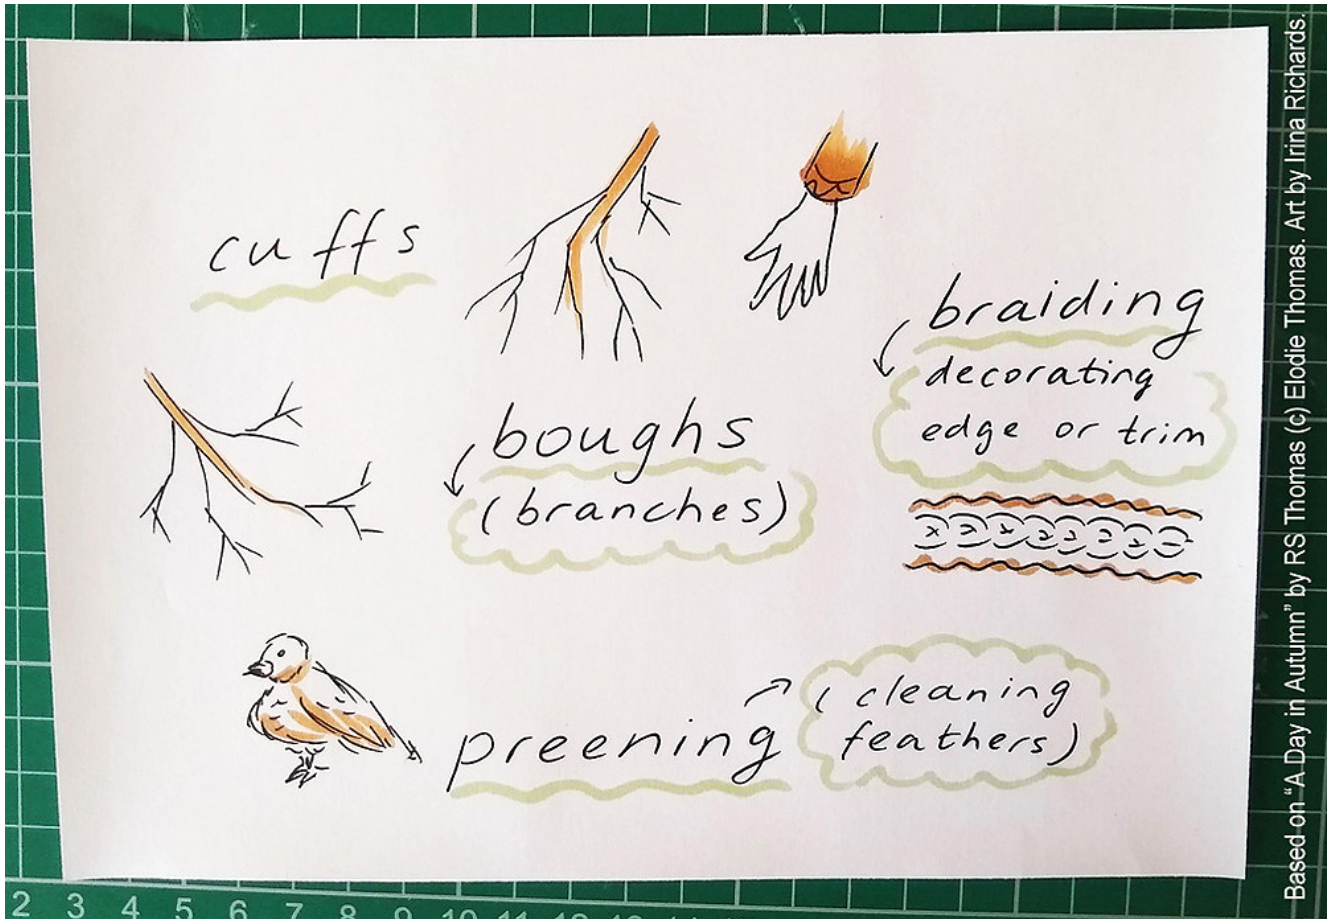 cuffs
braiding
decorating
edge or trim
boughs
(branches)
preening
(cleaning
feathers)
2 3 4 5 6 7 8 9 10 11
Based on “A Day in Autumn” by RS Thomas (c) Elodie Thomas. Art by Irina Richards.